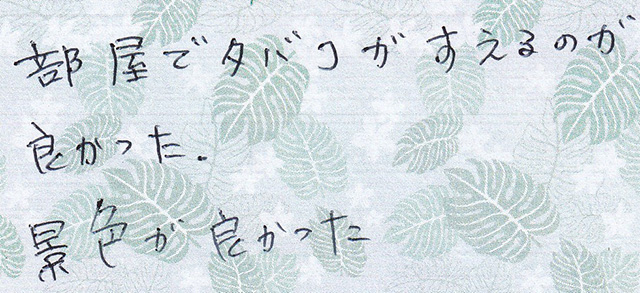 部屋でタバコがすえるのが
良かった.
景色が良かった